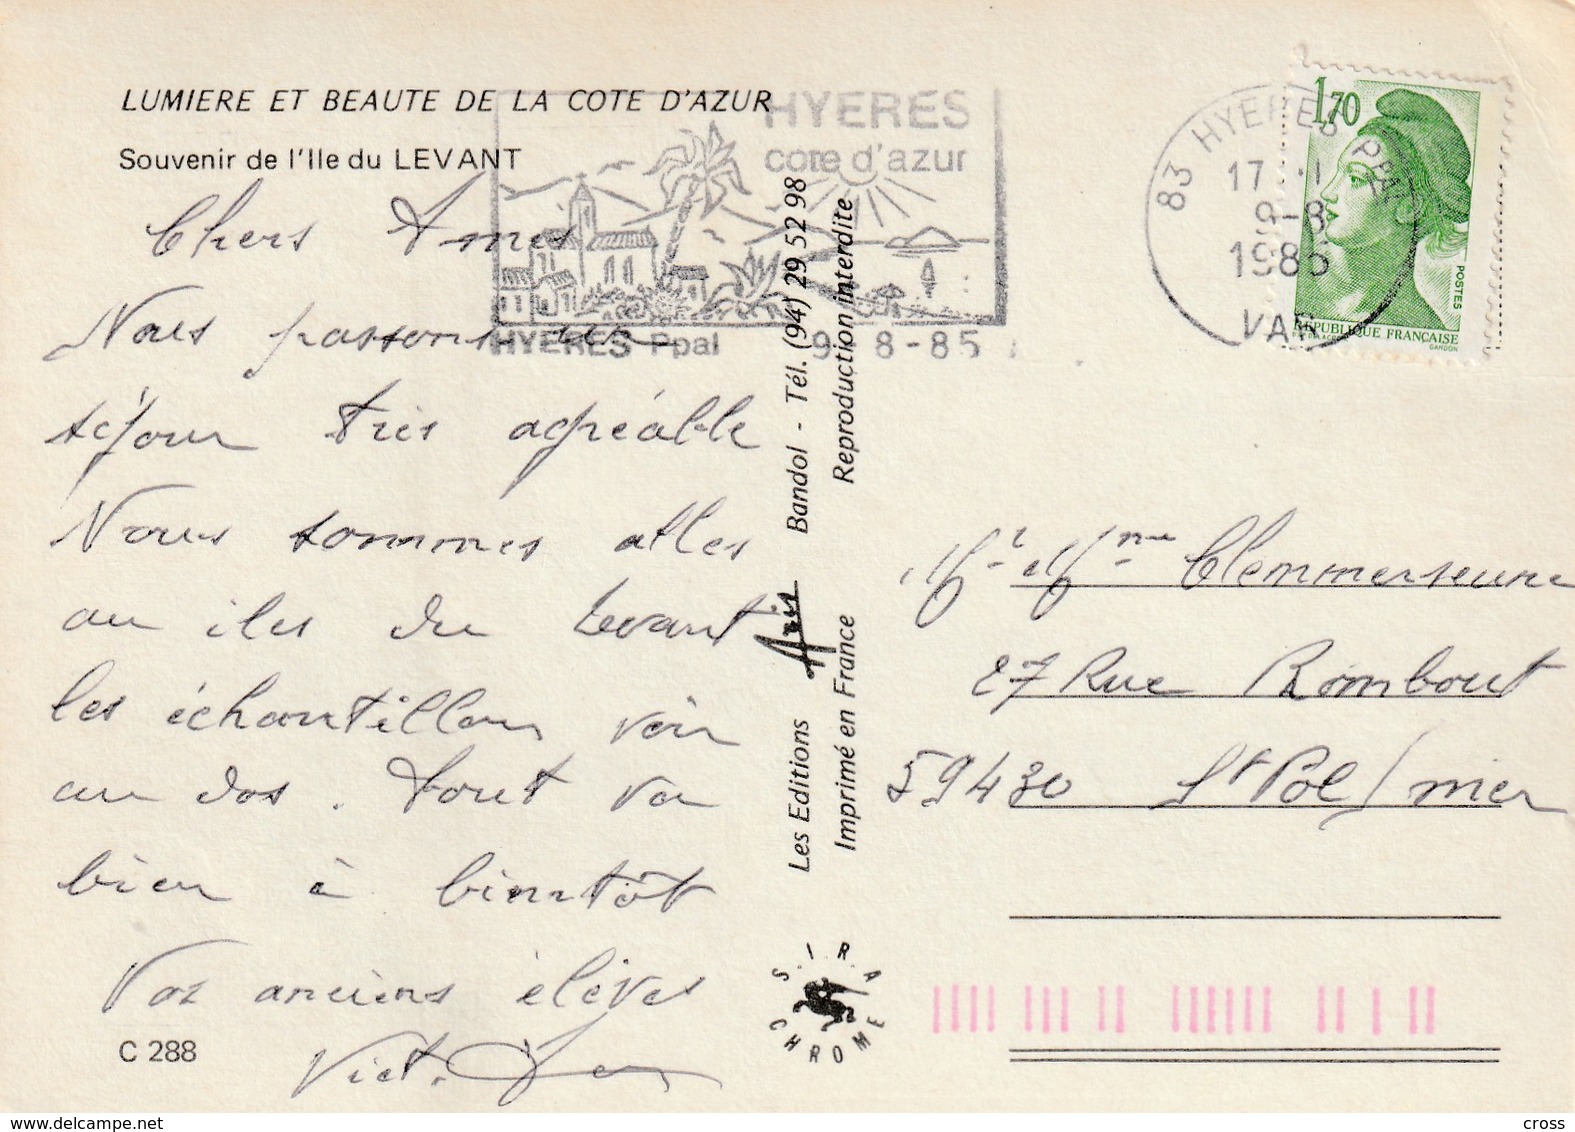 LUMIERE ET BEAUTE DE LA COTE D'AZUR
Souvenir de l'Ile du LEVANT
HYERES
cote d'azur
HYERES Ppal
9-8-85
83 HYERES PPAL
17
9-8
1985
VAR
1,70
POSTES
RÉPUBLIQUE FRANÇAISE
GANDON
Chers Amis
Nous passons un
séjour très agréable
Nous sommes allés
au iles du Levant
les échantillons voir
au dos. Tout va
bien à bientôt
Vos anciens élèves
Vict.
C 288
Les Editions Aris Bandol - Tél. (94) 29 52 98
Imprimé en France Reproduction interdite
S.I.R.A
CHROME
Mr et Mme Clemmerseune
27 Rue Rombout
59430 St Pol/mer
www.delcampe.net
cross